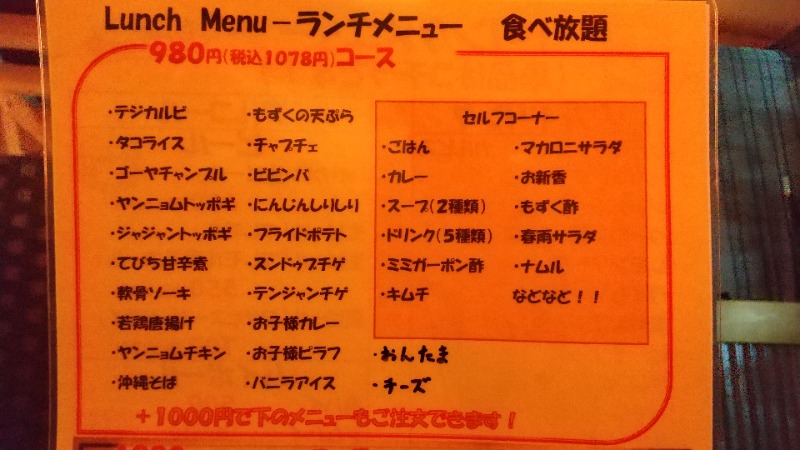 Lunch Menu－ランチメニュー 食べ放題
980円(税込1078円)コース
・テジカルビ
・タコライス
・ゴーヤチャンプル
・ヤンニョムトッポギ
・ジャジャントッポギ
・てびち甘辛煮
・軟骨ソーキ
・若鶏唐揚げ
・ヤンニョムチキン
・沖縄そば
・もずくの天ぷら
・チャプチェ
・ビビンバ
・にんじんしりしり
・フライドポテト
・スンドゥブチゲ
・テンジャンチゲ
・お子様カレー
・お子様ピラフ
・バニラアイス
セルフコーナー
・ごはん
・カレー
・スープ(2種類)
・ドリンク(5種類)
・ミミガーポン酢
・キムチ
・マカロニサラダ
・お新香
・もずく酢
・春雨サラダ
・ナムル
などなど！！
・おんたま
・チーズ
＋1000円で下のメニューもご注文できます！